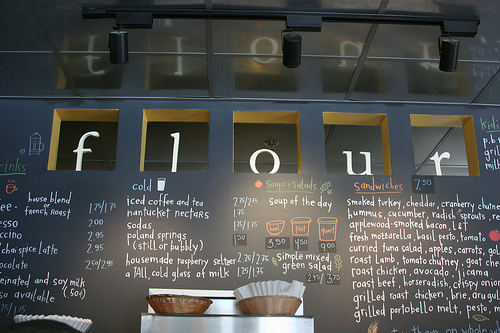 f l o u r
rinks
house blend
french Roast
1.25/1.75
esso
2.00
ccino
2.95
chai spice latte
2.95
ocolate
einated and soy milk
so available (.50¢)
cold
iced coffee and tea
nantucket nectars
sodas
poland springs
(still or bubbly)
homemade raspberry seltzer
a TALL, cold glass of milk
Soups & salads
soup of the day
3.50 4.50 9.00
simple mixed
green salad
Sandwiches 7.50
smoked turkey, cheddar, cranberry chutne
hummus, cucumber, radish sprouts, re
applewood-smoked bacon, L&T
fresh mozzarella, basil pesto, tomato
curried tuna salad, apples, carrots, gol
roast lamb, tomato chutney, goat che
roast chicken, avocado, jicama
roast beef, horseradish, crispy onio
grilled roast chicken, brie, arugul
grilled portobello melt, pesto, m
kid
p.b.
gril
milk